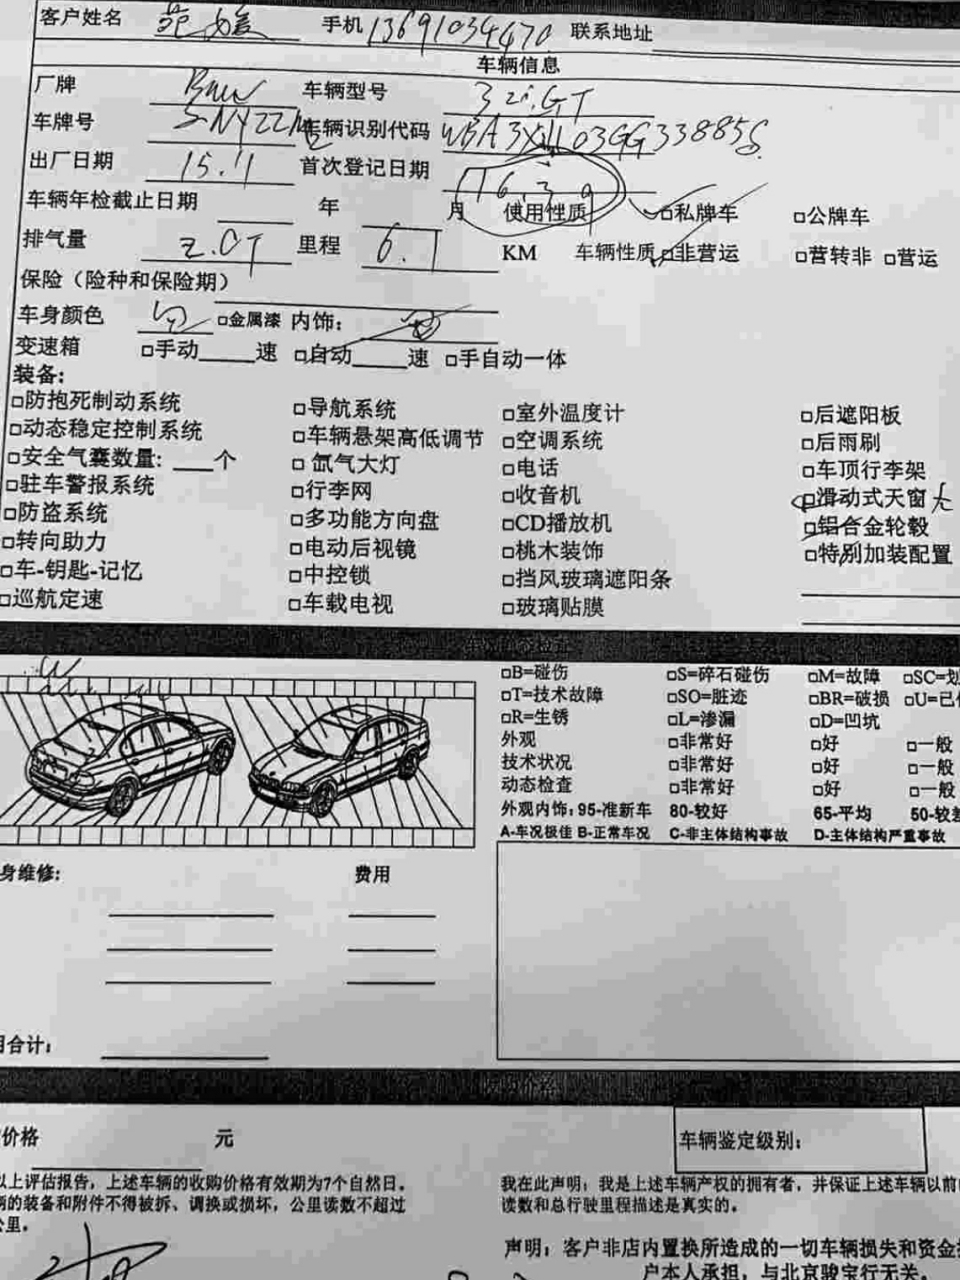 客户姓名 苑 媛 手机 13691034470 联系地址
车辆信息
厂牌 Bmw 车辆型号 32i.GT
车牌号 车辆识别代码
出厂日期 15.11 首次登记日期 16.3.9
车辆年检截止日期 年 月 使用性质 □私牌车 □公牌车
排气量 2.0T 里程 6.1 KM 车辆性质 □非营运 □营转非 □营运
保险（险种和保险期）
车身颜色 白 □金属漆 内饰：
变速箱 □手动 速 □自动 速 □手自动一体
装备:
□防抱死制动系统 □导航系统 □室外温度计 □后遮阳板
□动态稳定控制系统 □车辆悬架高低调节 □空调系统 □后雨刷
□安全气囊数量: 个 □氙气大灯 □电话 □车顶行李架
□驻车警报系统 □行李网 □收音机 □滑动式天窗 大
□防盗系统 □多功能方向盘 □CD播放机 □铝合金轮毂
□转向助力 □电动后视镜 □桃木装饰 □特别加装配置
□车-钥匙-记忆 □中控锁 □挡风玻璃遮阳条
□巡航定速 □车载电视 □玻璃贴膜
□B=碰伤 □S=碎石碰伤 □M=故障 □SC=划
□T=技术故障 □SO=脏迹 □BR=破损 □U=已
□R=生锈 □L=渗漏 □D=凹坑
外观 □非常好 □好 □一般
技术状况 □非常好 □好 □一般
动态检查 □非常好 □好 □一般
外观内饰：95-准新车 80-较好 65-平均 50-较差
A-车况极佳 B-正常车况 C-非主体结构事故 D-主体结构严重事故
身维修: 费用
合计：
价格 元
车辆鉴定级别：
以上评估报告，上述车辆的收购价格有效期为7个自然日。
辆的装备和附件不得被拆、调换或损坏，公里读数不超过
公里。
我在此声明：我是上述车辆产权的拥有者，并保证上述车辆以前
读数和总行驶里程描述是真实的。
声明：客户非店内置换所造成的一切车辆损失和资金
户本人承担，与北京骏宝行无关。